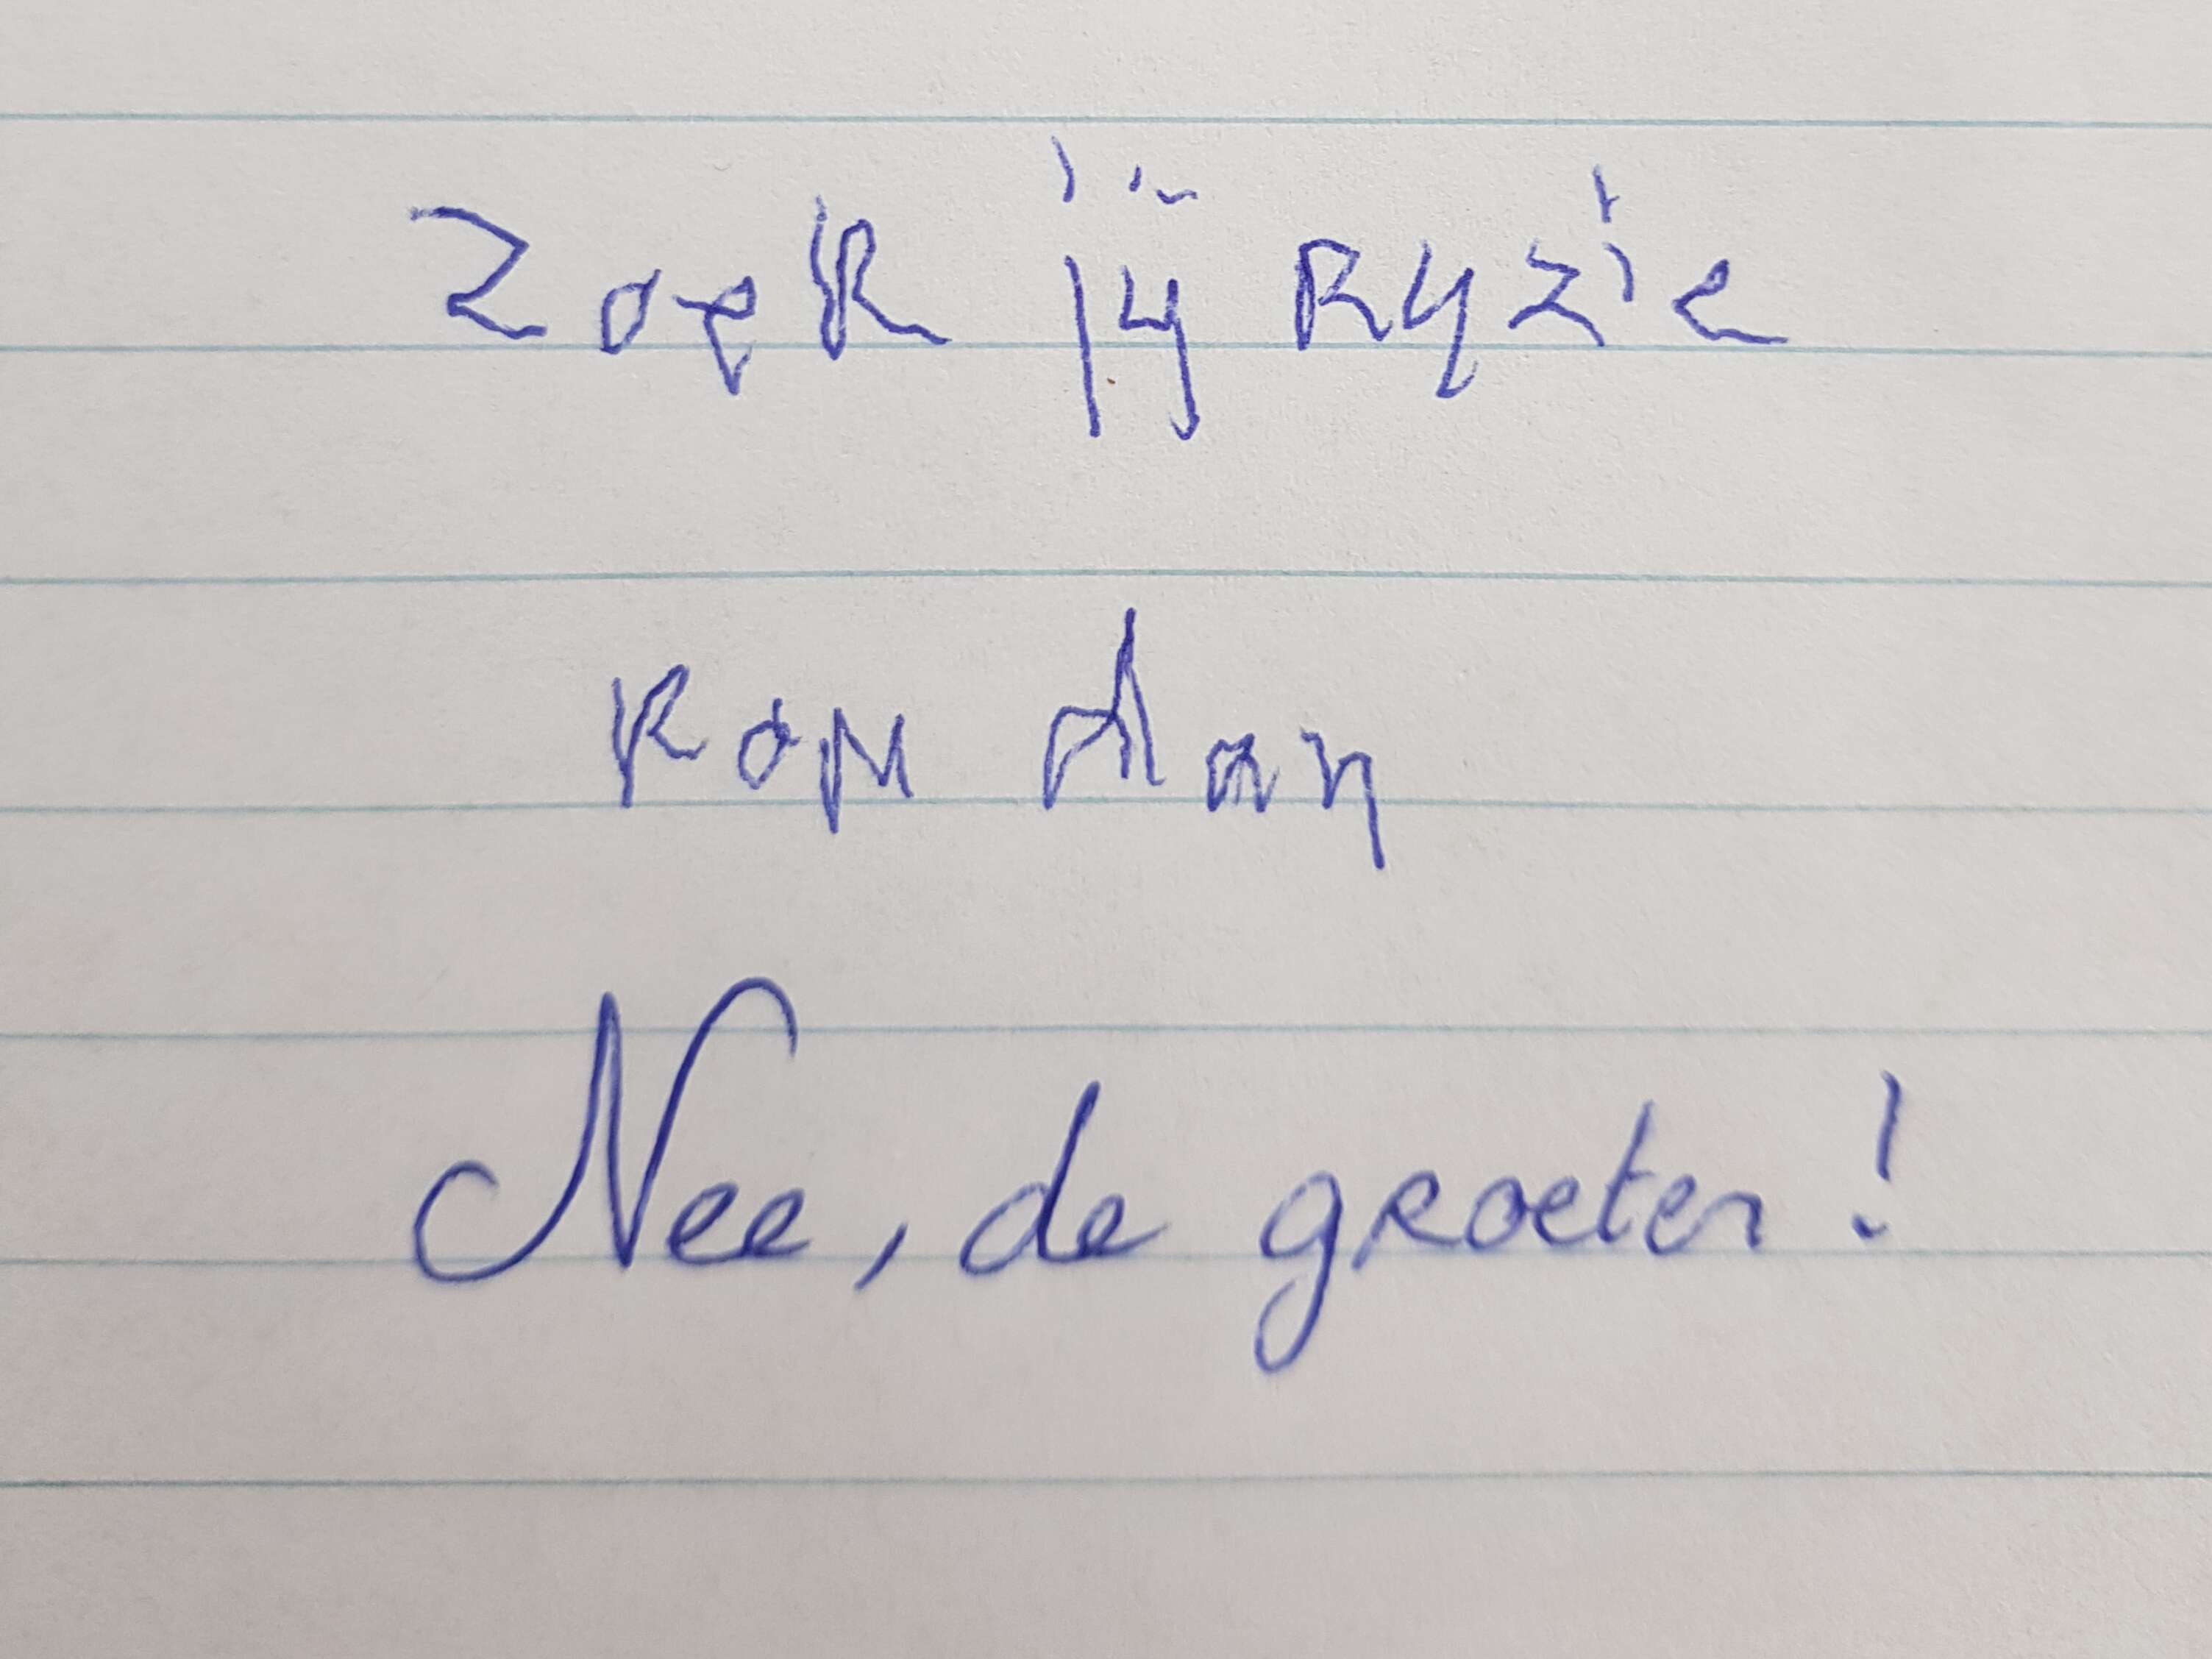 Zoek jij Ryzie
Kom dan
Nee, de groeten!